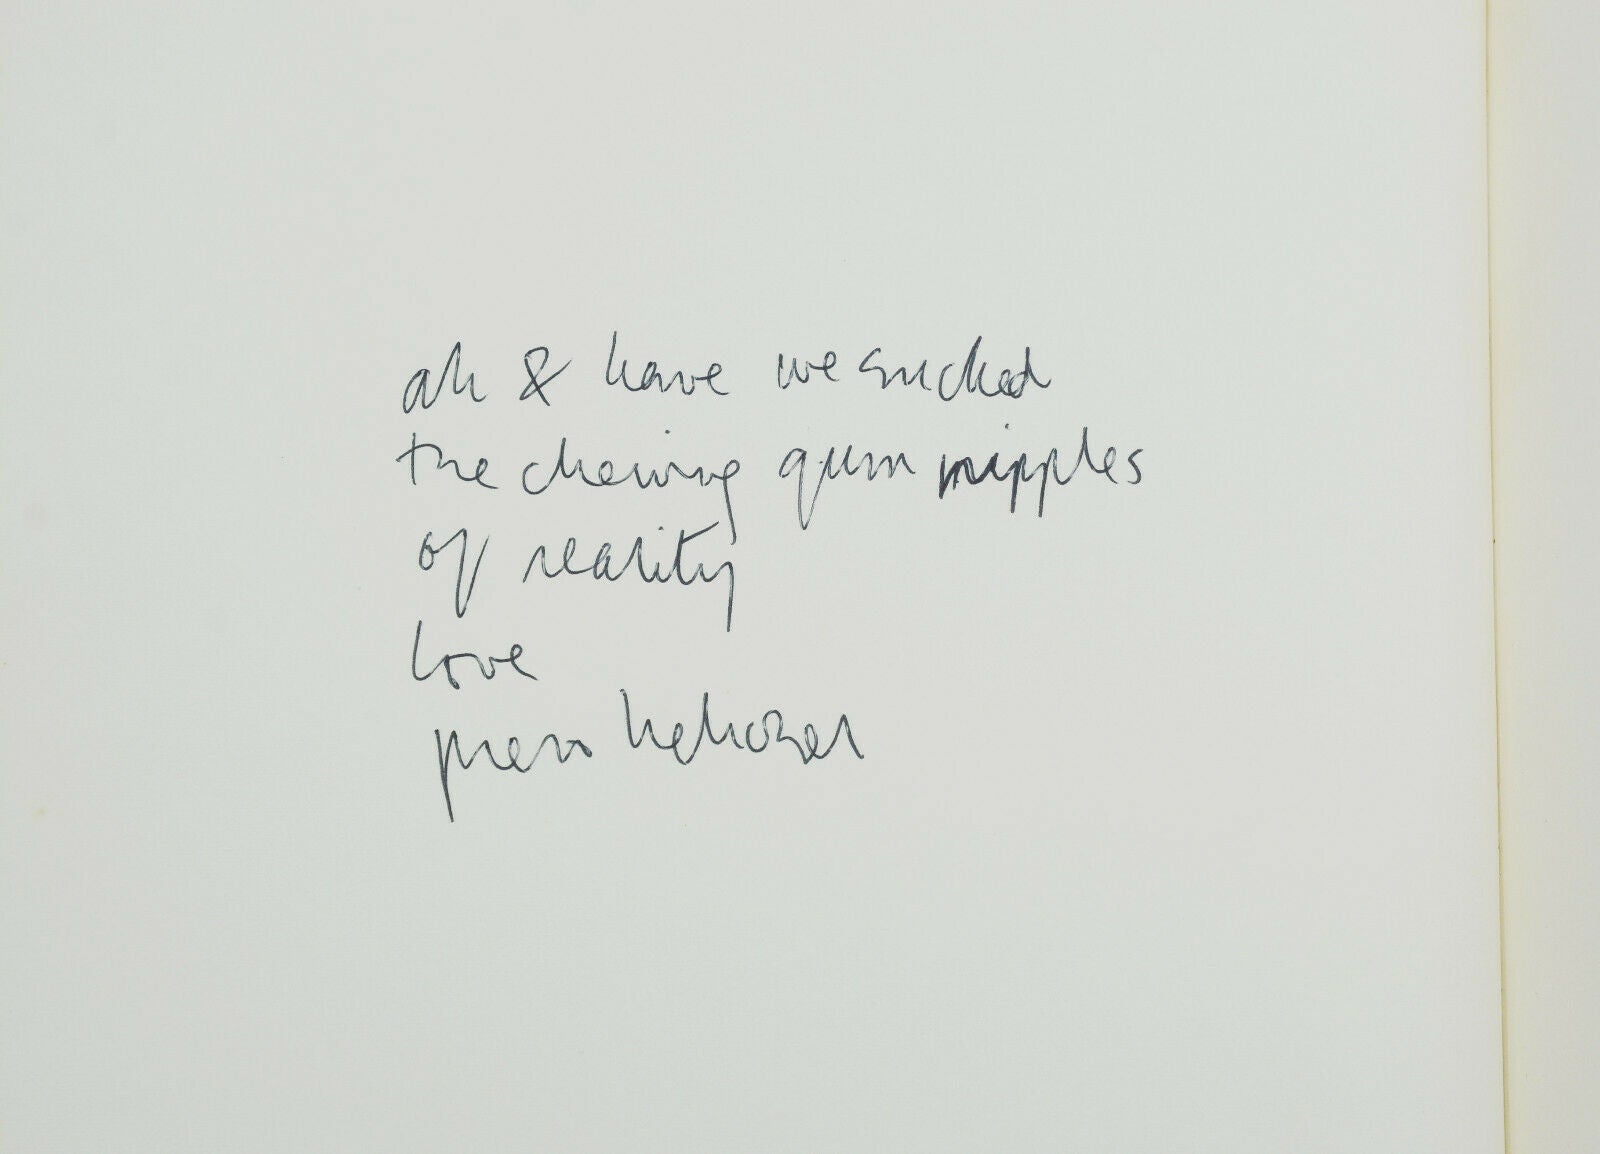 ah & have we sucked
the chewing gum nipples
of reality
love
piero heliczer